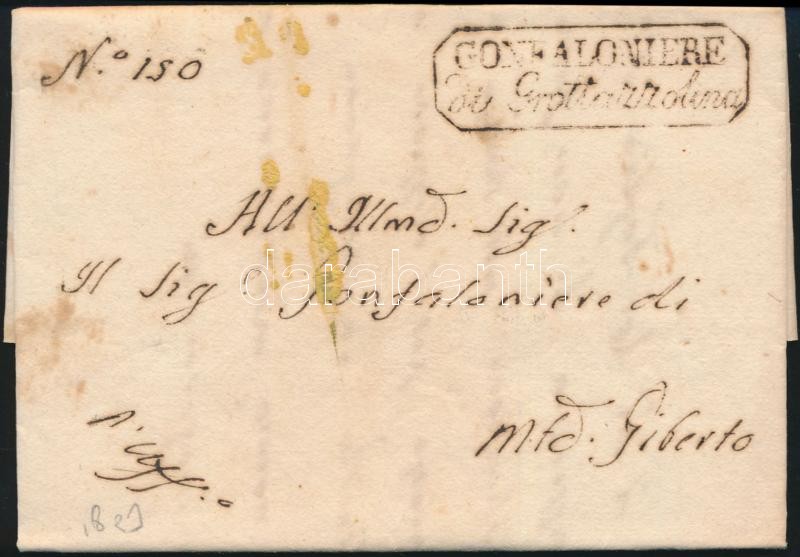 N.º 150
GONFALONIERE
di Grottazzolina
All' Illmo. Sig.
Il Sig Gonfaloniere di
Mte. Giberto
darabanth